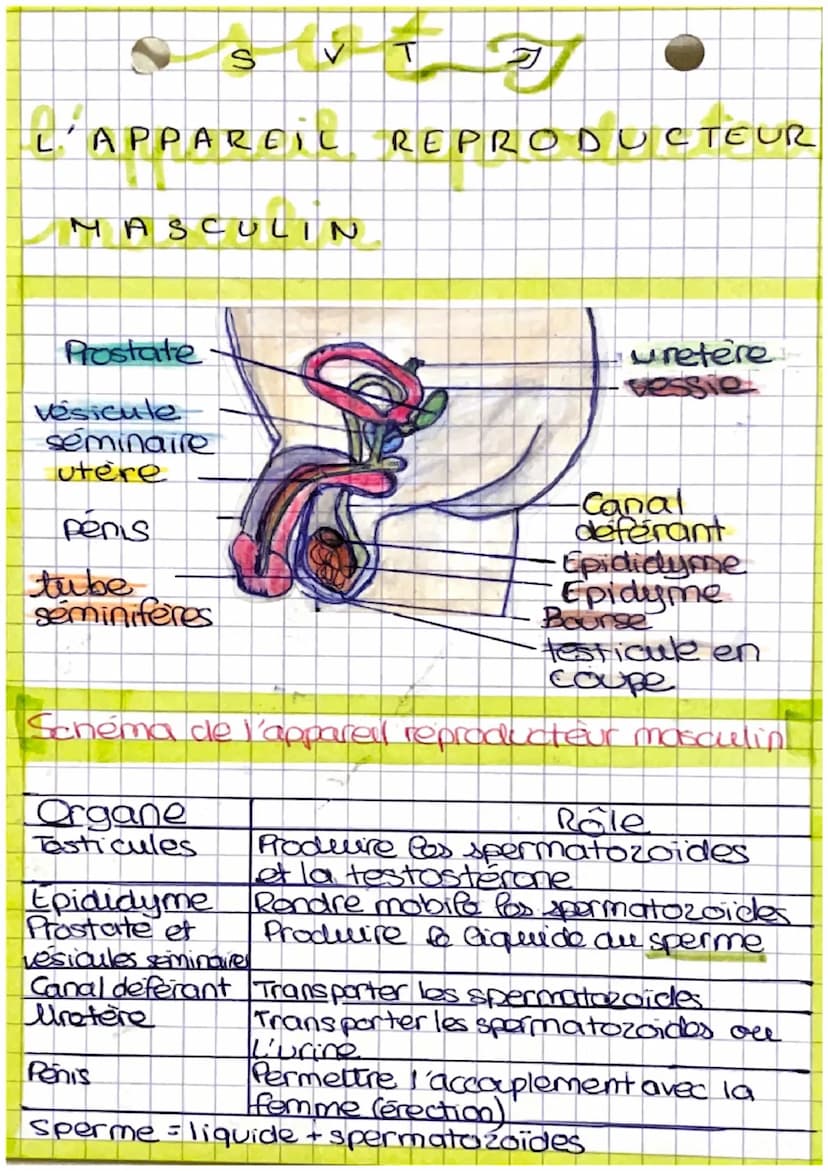 SVT
L'APPAREIL REPRODUCTEUR
MASCULIN
Prostate
vésicule
séminaire
utère
pénis
tube
séminifères
uretère
vessie
Canal
déférant
Epididyme
Epidyme
Bourse
testicule en
coupe
Schéma de l'appareil reproducteur masculin
Organe Rôle
Testicules Produire les spermatozoïdes
et la testostérone
Epididyme Rendre mobile les spermatozoïdes
Prostate et Produire le liquide au sperme
vésicules séminaires
Canal déférant Transporter les spermatozoïdes
Uretère Transporter les spermatozoïdes ou
l'urine
Pénis Permettre l'accouplement avec la
femme (érection)
sperme = liquide + spermatozoïdes